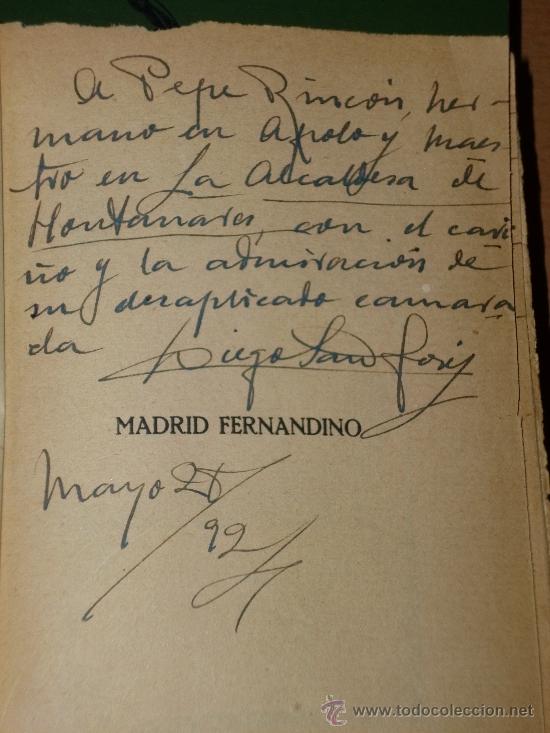 A Pepe Rincón, her-
mano en Apolo y maes-
tro en La Alcaldesa de
Hontanares, con el cari
ño y la admiración de
su desaplicado camara-
da Diego San José
MADRID FERNANDINO
Mayo
todocoleccion
www.todocoleccion.net